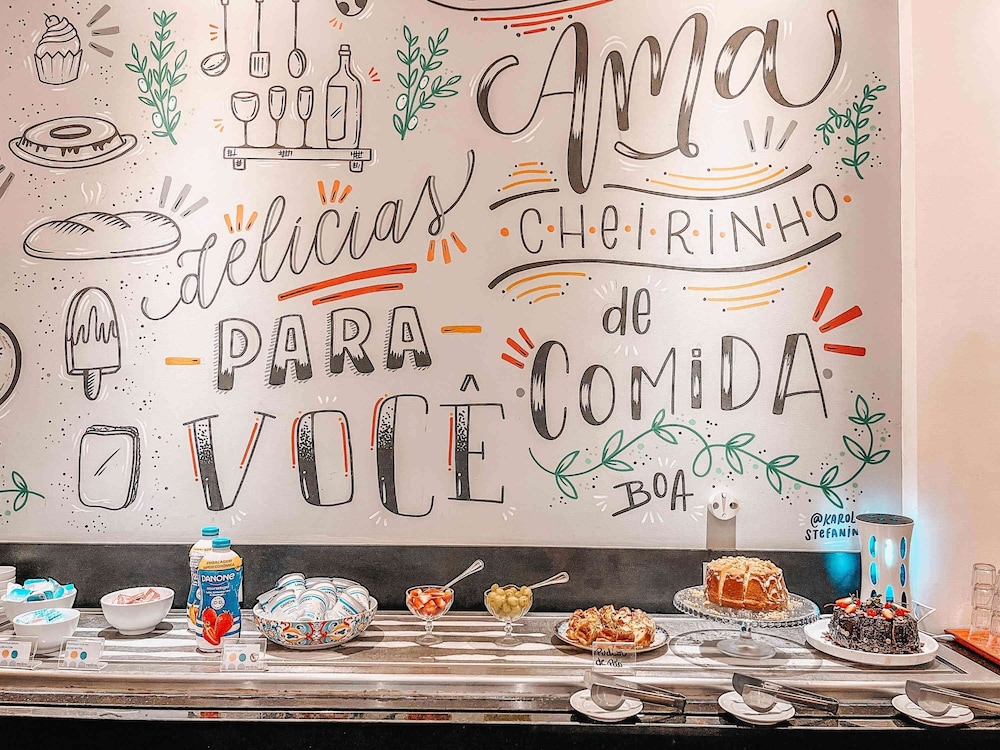 delícias
PARA
VOCÊ
AMa
CHEIRINHO
de
COMiDA
BOA
@KAROL
STEFANIN
DANONE